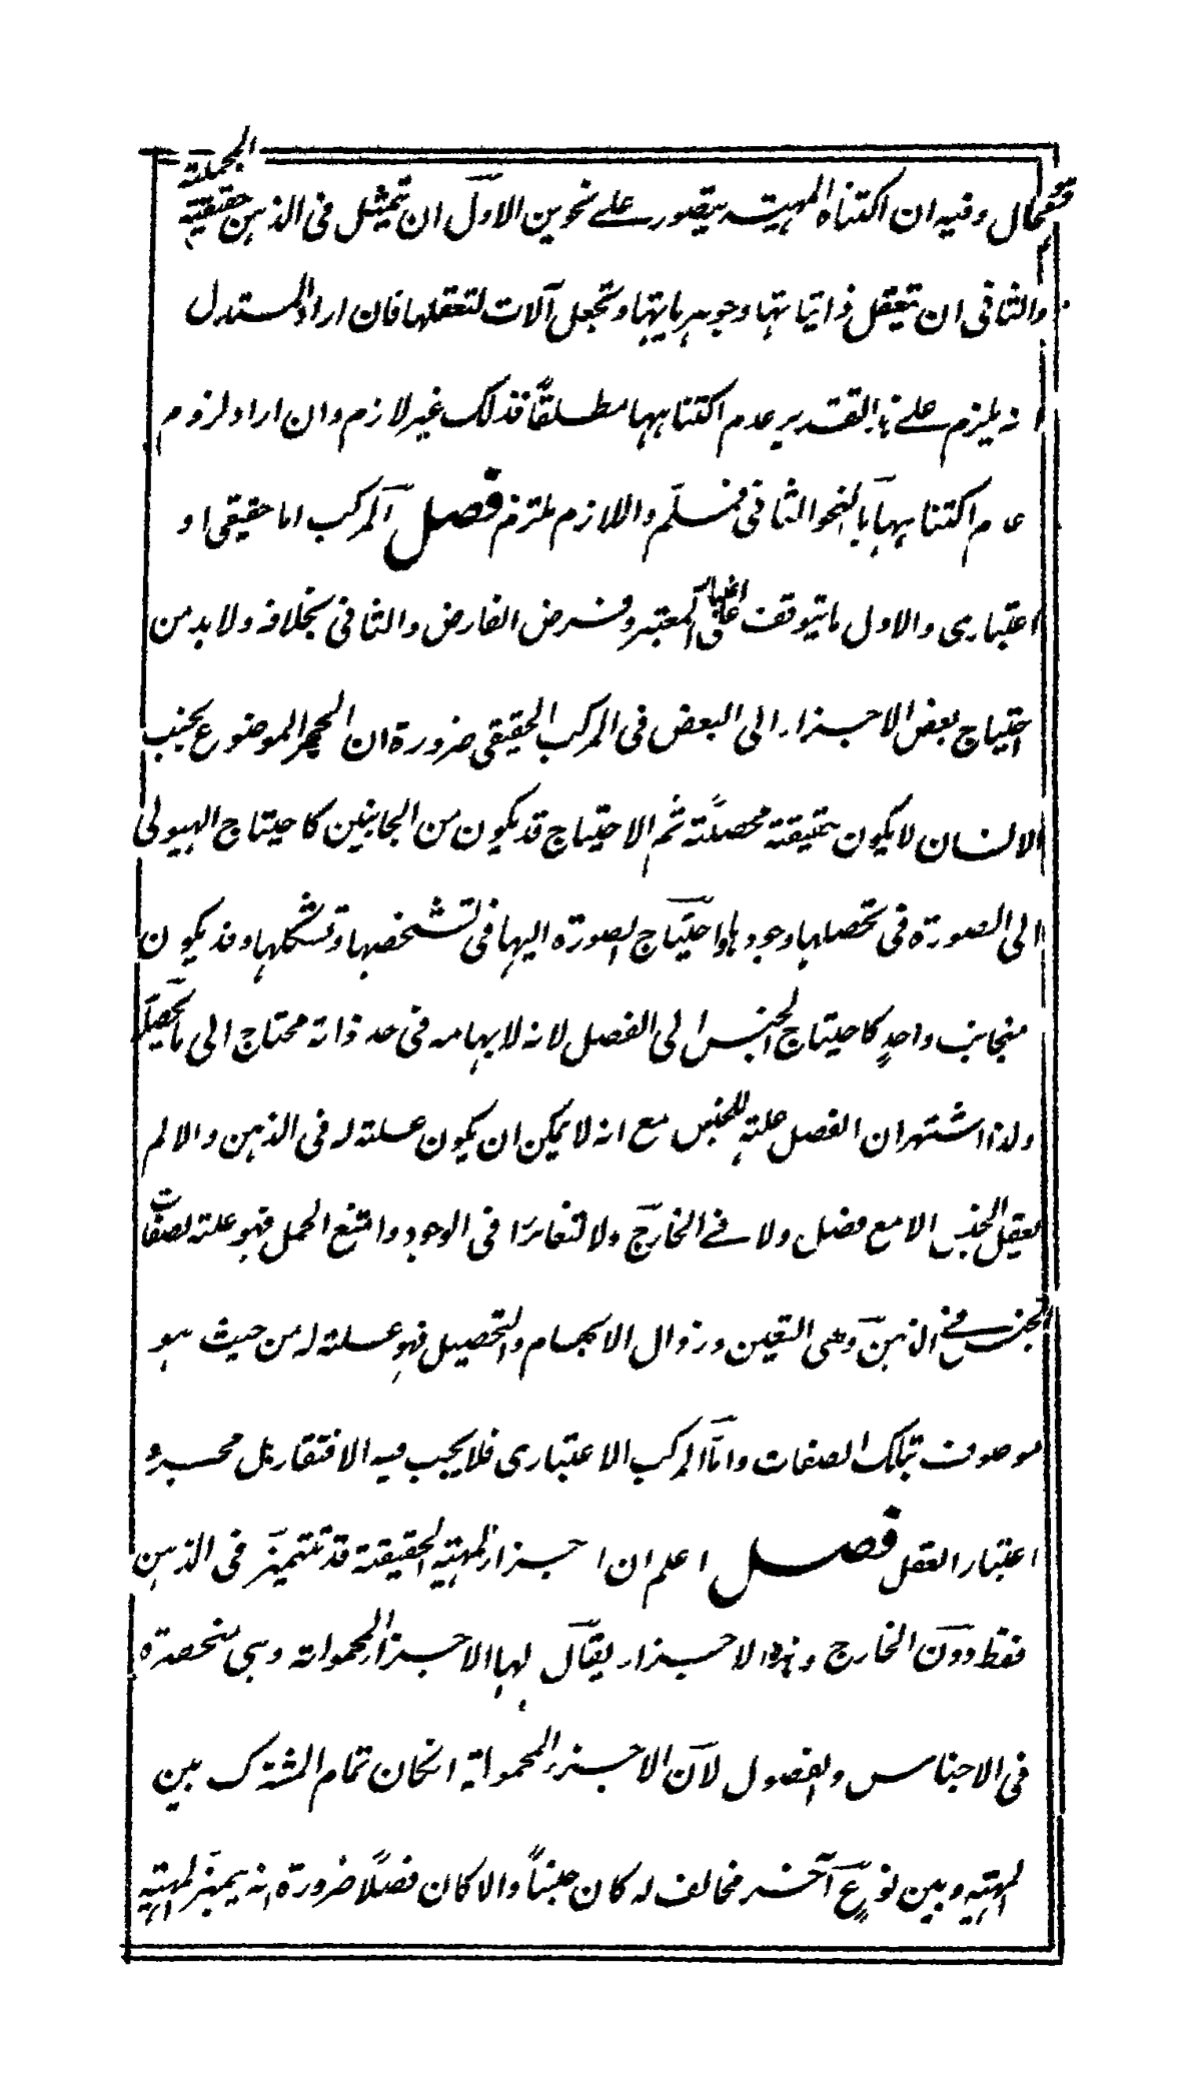 الجملية
محال وفيه ان اكتناه المهية يتصور على نحوين الاول ان تتمثل فى الذهن حقيقته
والثانى ان تتعقل ذاتياتها وجوهرياتها وتجعل آلات لتعقلها فان اراد المستدل
نه يلزم على هذا التقدير عدم اكتناهها مطلقاً فذلك غير لازم وان اراد لزوم
عدم اكتناهها بالنحو الثانى فمسلم واللازم ملتزم فصل المركب اما حقيقى او
اعتبارى والاول ما يتوقف على اعتبار المعتبر وفرض الفارض والثانى بخلافه ولا بد من
احتياج بعض الاجزاء الى البعض فى المركب الحقيقى ضرورة ان الحجر الموضوع بجنب
الانسان لا يكون حقيقة محصلة ثم الاحتياج قد يكون من الجانبين كاحتياج الهيولى
الى الصورة فى تحصلها ووجودها واحتياج الصورة اليها فى تشخصها وتشكلها وقد يكون
من جانب واحدٍ كاحتياج الجنس الى الفصل لانه لابهامه فى حد ذاته محتاج الى ما يحصله
ولذا اشتهر ان الفصل علة للجنس مع انه لا يمكن ان يكون علة له فى الذهن والا لم
يعقل الجنس الا مع فصل ولا فى الخارج والا لتغايرا فى الوجود وامتنع الحمل فهو علة لصفات
الجنس فى الذهن وهى التعين وزوال الابهام والتحصيل فهو علة له من حيث هو
موصوف بتلك الصفات واما المركب الاعتبارى فلا يجب فيه الافتقار بل مجرد
اعتبار العقل فصل اعلم ان اجزاء المهية الحقيقة قد تتميز فى الذهن
فقط دون الخارج وهذه الاجزاء يقال لها الاجزاء المحمولة وهى منحصرة
فى الاجناس والفصول لان الاجزاء المحمولة انكان تمام المشترك بين
المهية وبين نوعٍ آخر مخالف له كان جنساً والا كان فصلاً ضرورة انه يميز المهية